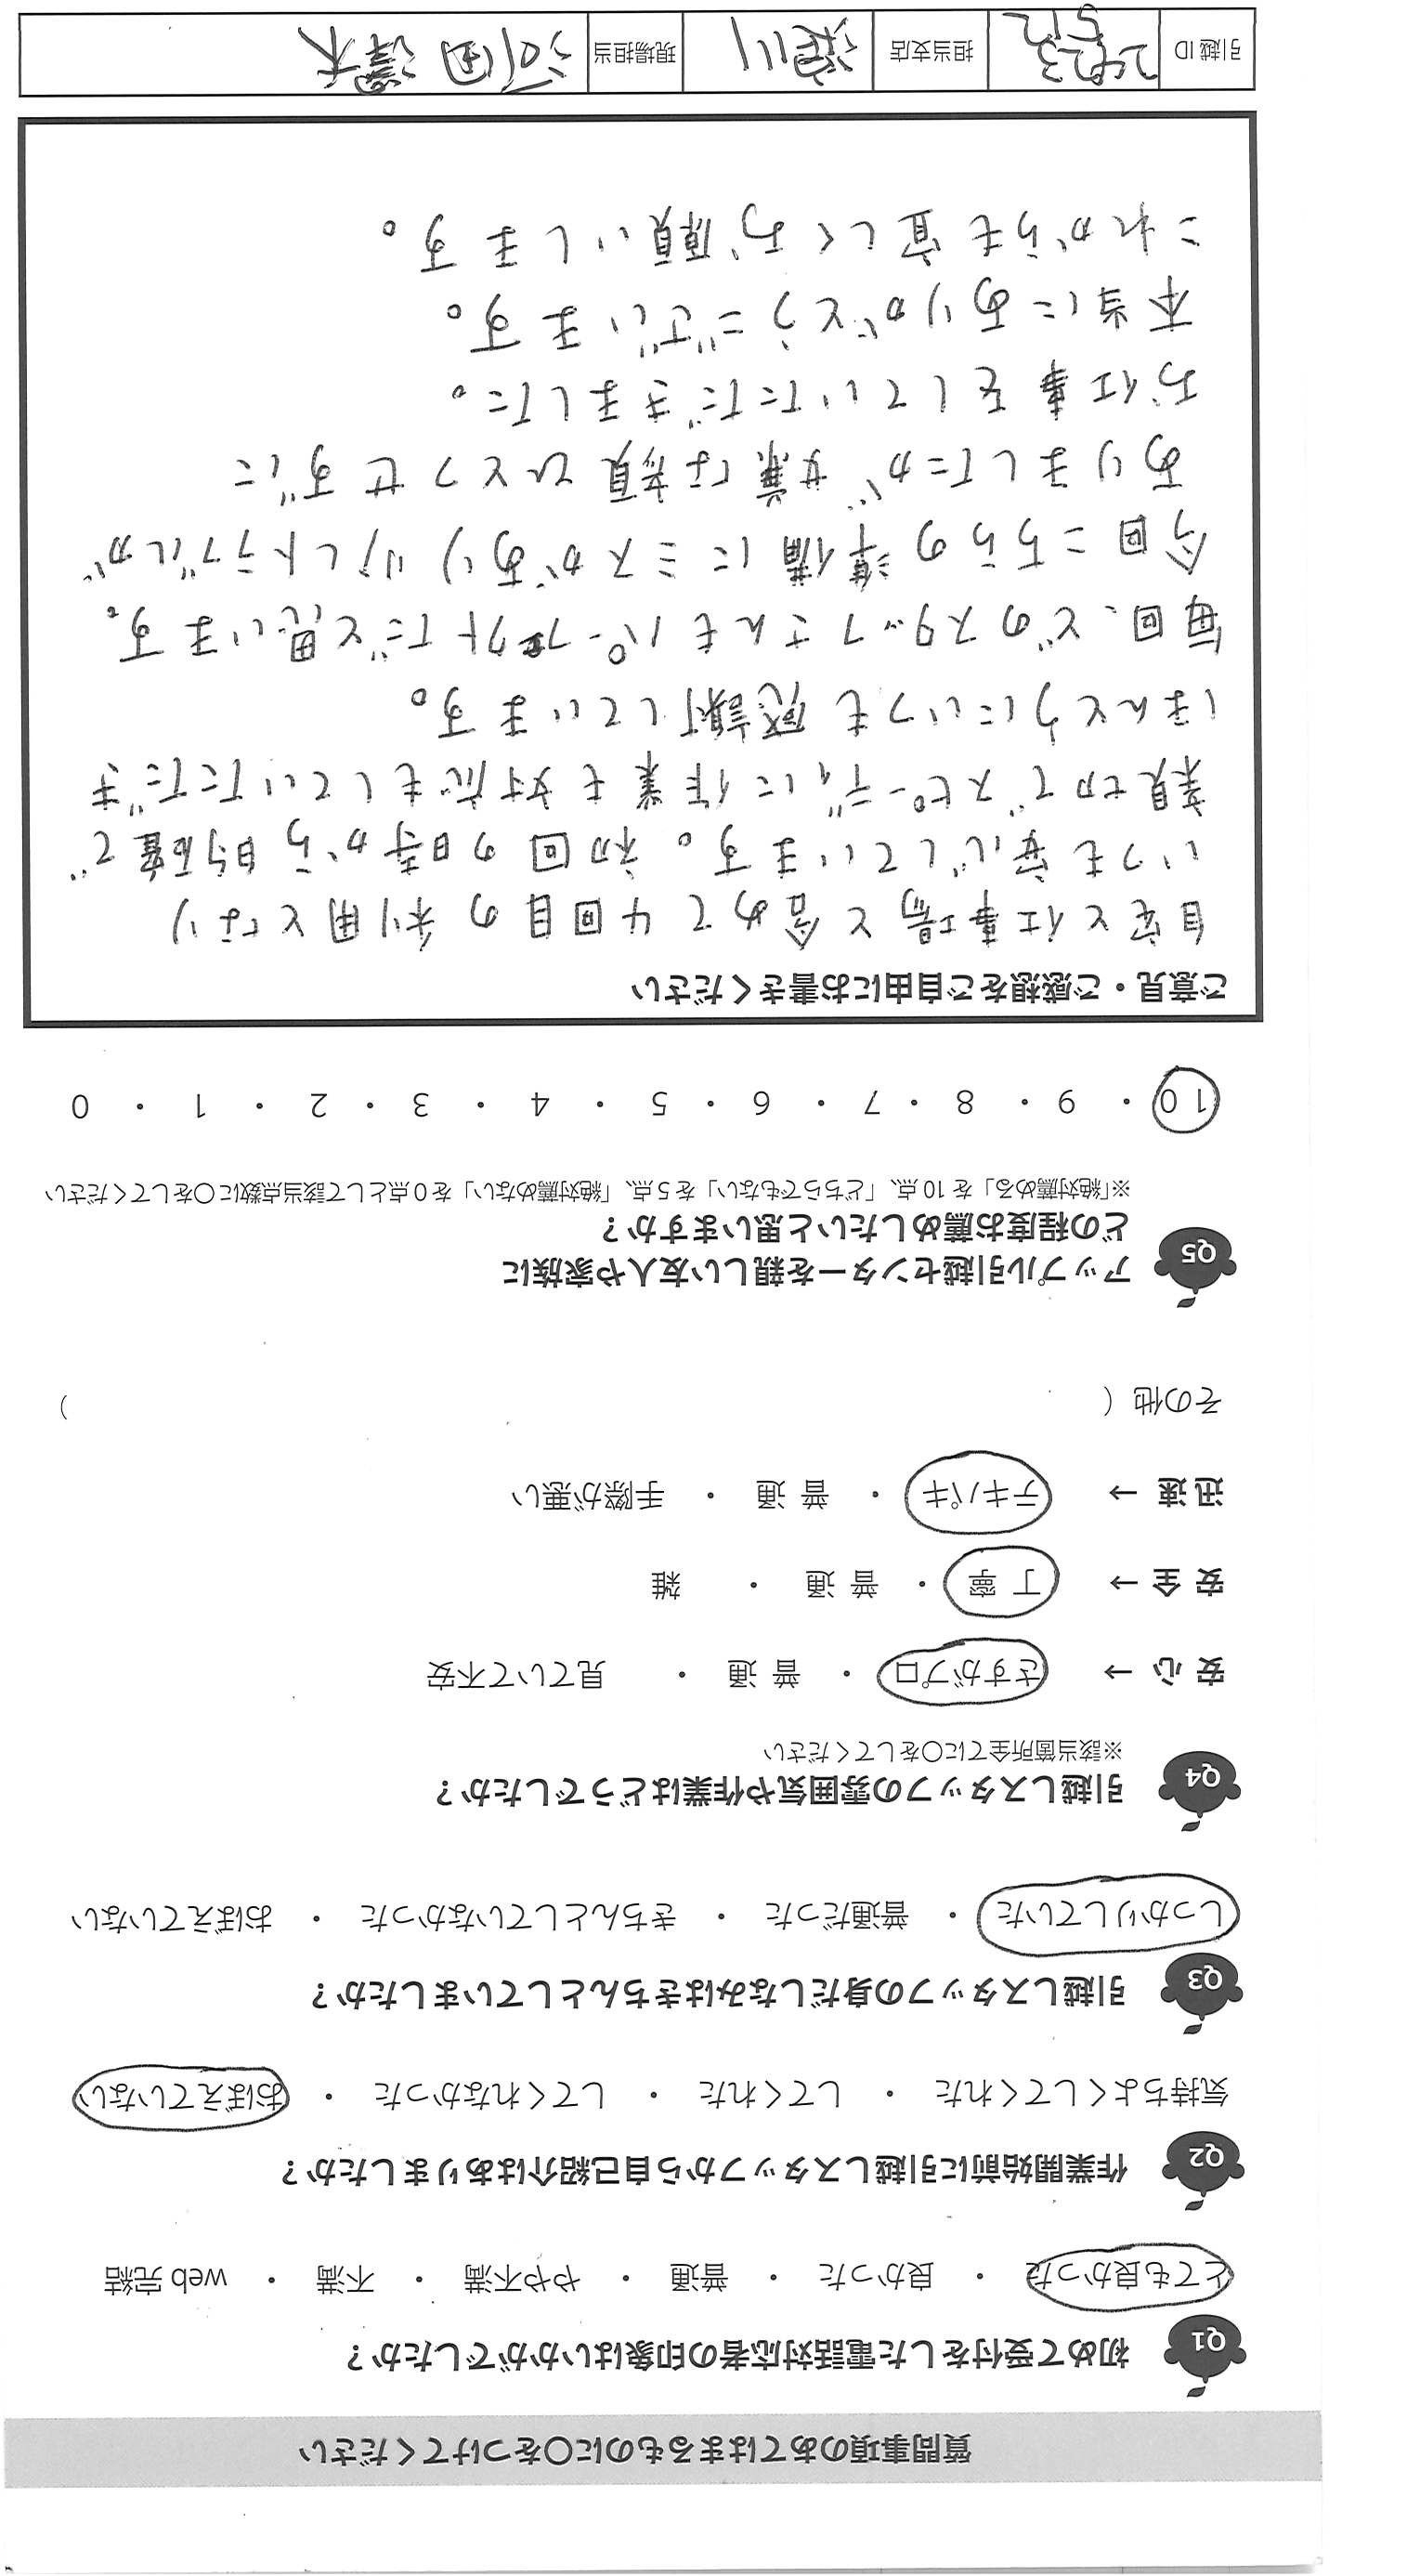 質問事項のあてはまるものに〇をつけてください
Q1 初めて受付をした電話対応者の印象はいかがでしたか？
とても良かった ・ 良かった ・ 普通 ・ やや不満 ・ 不満 ・ web 完結
Q2 作業開始前に引越しスタッフから自己紹介はありましたか？
気持ちよくしてくれた ・ してくれた ・ してくれなかった ・ おぼえていない
Q3 引越しスタッフの身だしなみはきちんとしていましたか？
しっかりしていた ・ 普通だった ・ きちんとしていなかった ・ おぼえていない
Q4 引越しスタッフの雰囲気や作業はどうでしたか？
※該当箇所全てに〇をしてください
安 心 → さすがプロ ・ 普 通 ・ 見ていて不安
安 全 → 丁 寧 ・ 普 通 ・ 雑
迅 速 → テキパキ ・ 普 通 ・ 手際が悪い
その他（ ）
Q5 アップル引越センターを親しい友人や家族に
どの程度お薦めしたいと思いますか？
※「絶対薦める」を 10 点、「どちらでもない」を 5 点、「絶対薦めない」を 0 点として該当点数に〇をしてください
10 ・ 9 ・ 8 ・ 7 ・ 6 ・ 5 ・ 4 ・ 3 ・ 2 ・ 1 ・ 0
ご意見・ご感想をご自由にお書きください
自宅と仕事場と含めて4回目の利用となり
いつも安心しています。初回の時から的確で
親切でスピーディに作業も対応もしていただき
ほんとうにいつも感謝しています。
毎回、どのスタッフさんもパーフェクトだと思います。
今回こちらの準備にミスがあり少しトラブルが
ありましたが嫌な顔ひとつせずに
お仕事をしていただきました。
本当にありがとうございます。
これからも宜しくお願いします。
引越 ID 担当支店 現場担当 河田